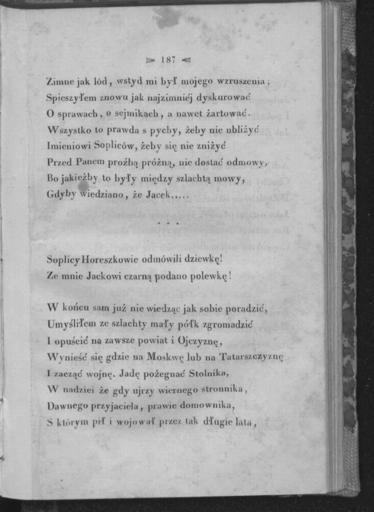 187
Zimne jak lód, wstyd mi był mojego wzruszenia;
Spieszyłem znowu jak najzimniéj dyskurować
O sprawach, o sejmikach, a nawet żartować.
Wszystko to prawda s pychy, żeby nie ubliżyć
Imieniowi Sopliców, żeby się nie zniżyć
Przed Panem proźbą próżną, nie dostać odmowy,
Bo jakieżby to były między szlachtą mowy,
Gdyby wiedziano, że Jacek.....
. . .
Soplicy Horeszkowie odmówili dziewkę!
Ze mnie Jackowi czarną podano polewkę!
W końcu sam już nie wiedząc jak sobie poradzić,
Umyśliłem ze szlachty mały półk zgromadzić
I opuścić na zawsze powiat i Ojczyznę,
Wynieść się gdzie na Moskwę lub na Tatarszczyznę
I zacząć wojnę. Jadę pożegnać Stolnika,
W nadziei że gdy ujrzy wiernego stronnika,
Dawnego przyjaciela, prawie domownika,
S którym pił i wojował przez tak długie lata,